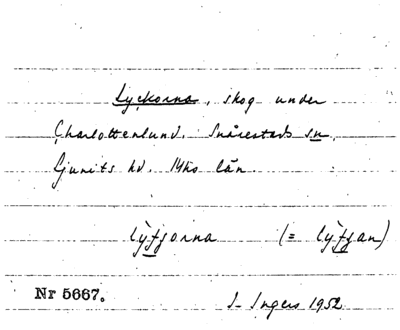 Lyckorna, skog under
Charlottenlund. Snårestads sn,
Ljunits hd. Mhs län.
lỳfgorna (= lỳfgan)
Nr 5667.
I. Ingers 1952